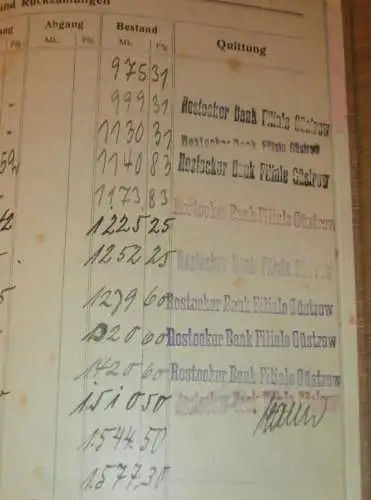 und Rückzahlungen
Abgang Bestand Quittung
Pfg. Mk. Pfg. Mk. Pfg.
975 31
- 999 31 Rostocker Bank Filiale Güstrow
- 1130 31 Rostocker Bank Filiale Güstrow
59 1140 83 Rostocker Bank Filiale Güstrow
- 1173, 83
42 1225 25 Rostocker Bank Filiale Güstrow
- 1252 25 Rostocker Bank Filiale Güstrow
5 1279 60 Rostocker Bank Filiale Güstrow
1320 60 Rostocker Bank Filiale Güstrow
- 1.420 60 Rostocker Bank Filiale Güstrow
1.510 50 Rostocker Bank Filiale Güstrow
1.544.50
1.577.30